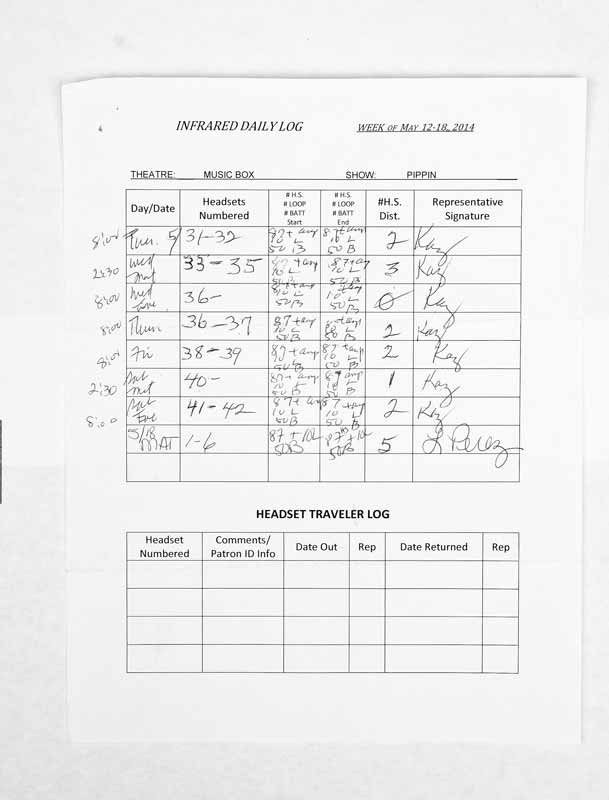 INFRARED DAILY LOG WEEK OF MAY 12-18, 2014
THEATRE: MUSIC BOX SHOW: PIPPIN
Day/Date Headsets Numbered # H.S. # LOOP # BATT Start # H.S. # LOOP # BATT End #H.S. Dist. Representative Signature
8:00 Tues. 31-32 87+ amp 10 L 50 B 87+ amp 10 L 50 B 2 Kay
2:30 Wed Mat 33-35 87+ amp 10 L 50 B 87+ay 10 L 50 B 3 Kay
8:00 Wed Eve 36- 10 L 50B 10 L 50B 0 Kay
8:00 Thurs 36-37 87+amp 10 L 50B 2 Kay
8:00 Fri 38-39 87+amp 10 L 50B 87+amp 10 L 50 B 2 Kay
2:30 Sat Mat 40- 87+ amp 10 L 50 B 87+ amp 10 L 50B 1 Kay
8:00 Sat Eve 41-42 87+ amp 10 L 50B 87+amp 10 L 50 B 2 Kay
5/18 MAT 1-6 87+10L 50B 87+10L 50B 5 L Perez
HEADSET TRAVELER LOG
Headset Numbered Comments/ Patron ID Info Date Out Rep Date Returned Rep